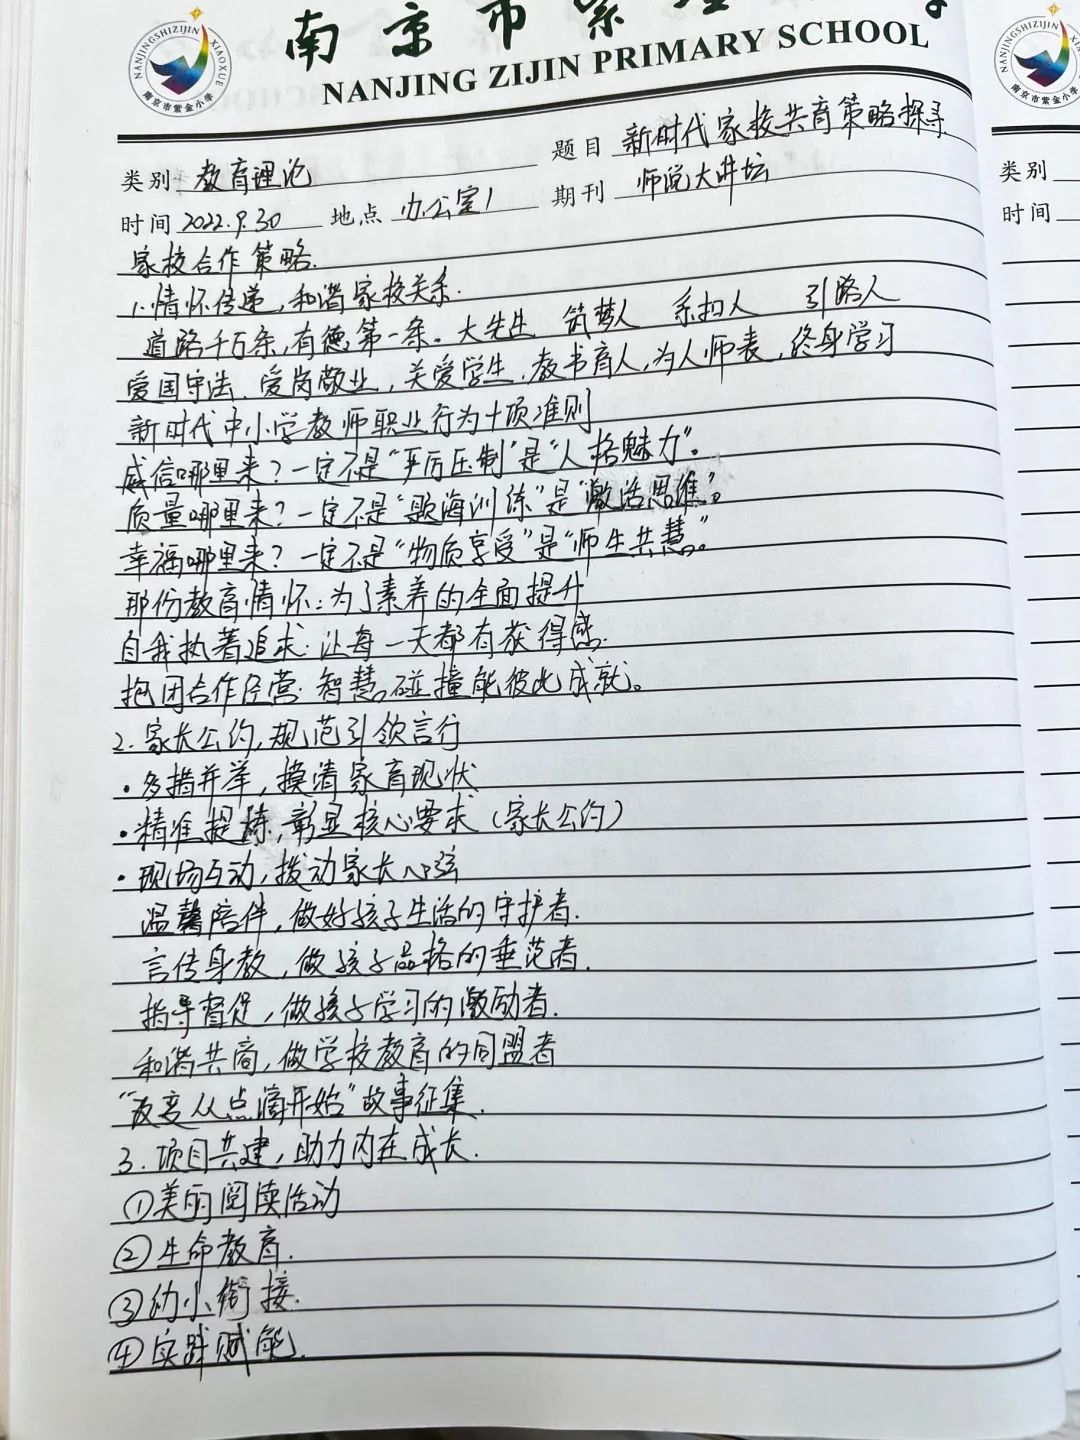 南京市紫金小学
NANJING ZIJIN PRIMARY SCHOOL
NANJINGSHIZIJIN XIAOXUE
南京市紫金小学
类别 教育理论 题目 新时代家校共育策略探寻
时间 2022.9.30 地点 办公室1 期刊 师说大讲坛
家校合作策略.
1.情怀传递,和谐家校关系.
道路千万条,有德第一条。大先生 筑梦人 系扣人 引路人
爱国守法、爱岗敬业,关爱学生、教书育人,为人师表,终身学习
新时代中小学教师职业行为十项准则
威信哪里来?一定不是“严厉压制”是“人格魅力”。
质量哪里来?一定不是“题海训练”是“激活思维”。
幸福哪里来?一定不是“物质享受”是“师生共慧。”
那份教育情怀:为了素养的全面提升
自我执著追求:让每一天都有获得感.
抱团合作经营:智慧碰撞能彼此成就。
2.家长公约,规范引领言行
·多措并举,摸清家育现状
·精准提炼,彰显核心要求(家长公约)
·现场互动,拨动家长心弦
温馨陪伴,做好孩子生活的守护者.
言传身教,做孩子品格的垂范者.
指导督促,做孩子学习的激励者.
和谐共商,做学校教育的同盟者
“改变从点滴开始”故事征集.
3.项目共建,助力内在成长.
①美丽阅读活动
②生命教育.
③幼小衔接.
④实践赋能.
NANJINGSHIZIJIN
南京市紫金小学
类别
时间